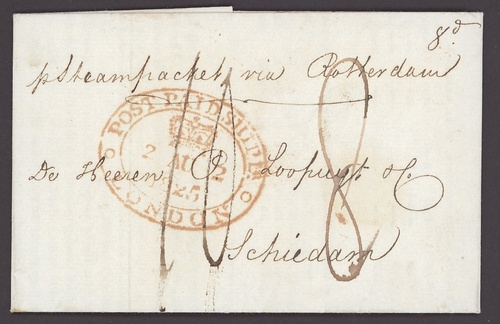 8d
p Steampacket via Rotterdam
POST PAID SHIP
2 AU 2
25
LONDON
De Heeren P Loopuyt & C
Schiedam
18